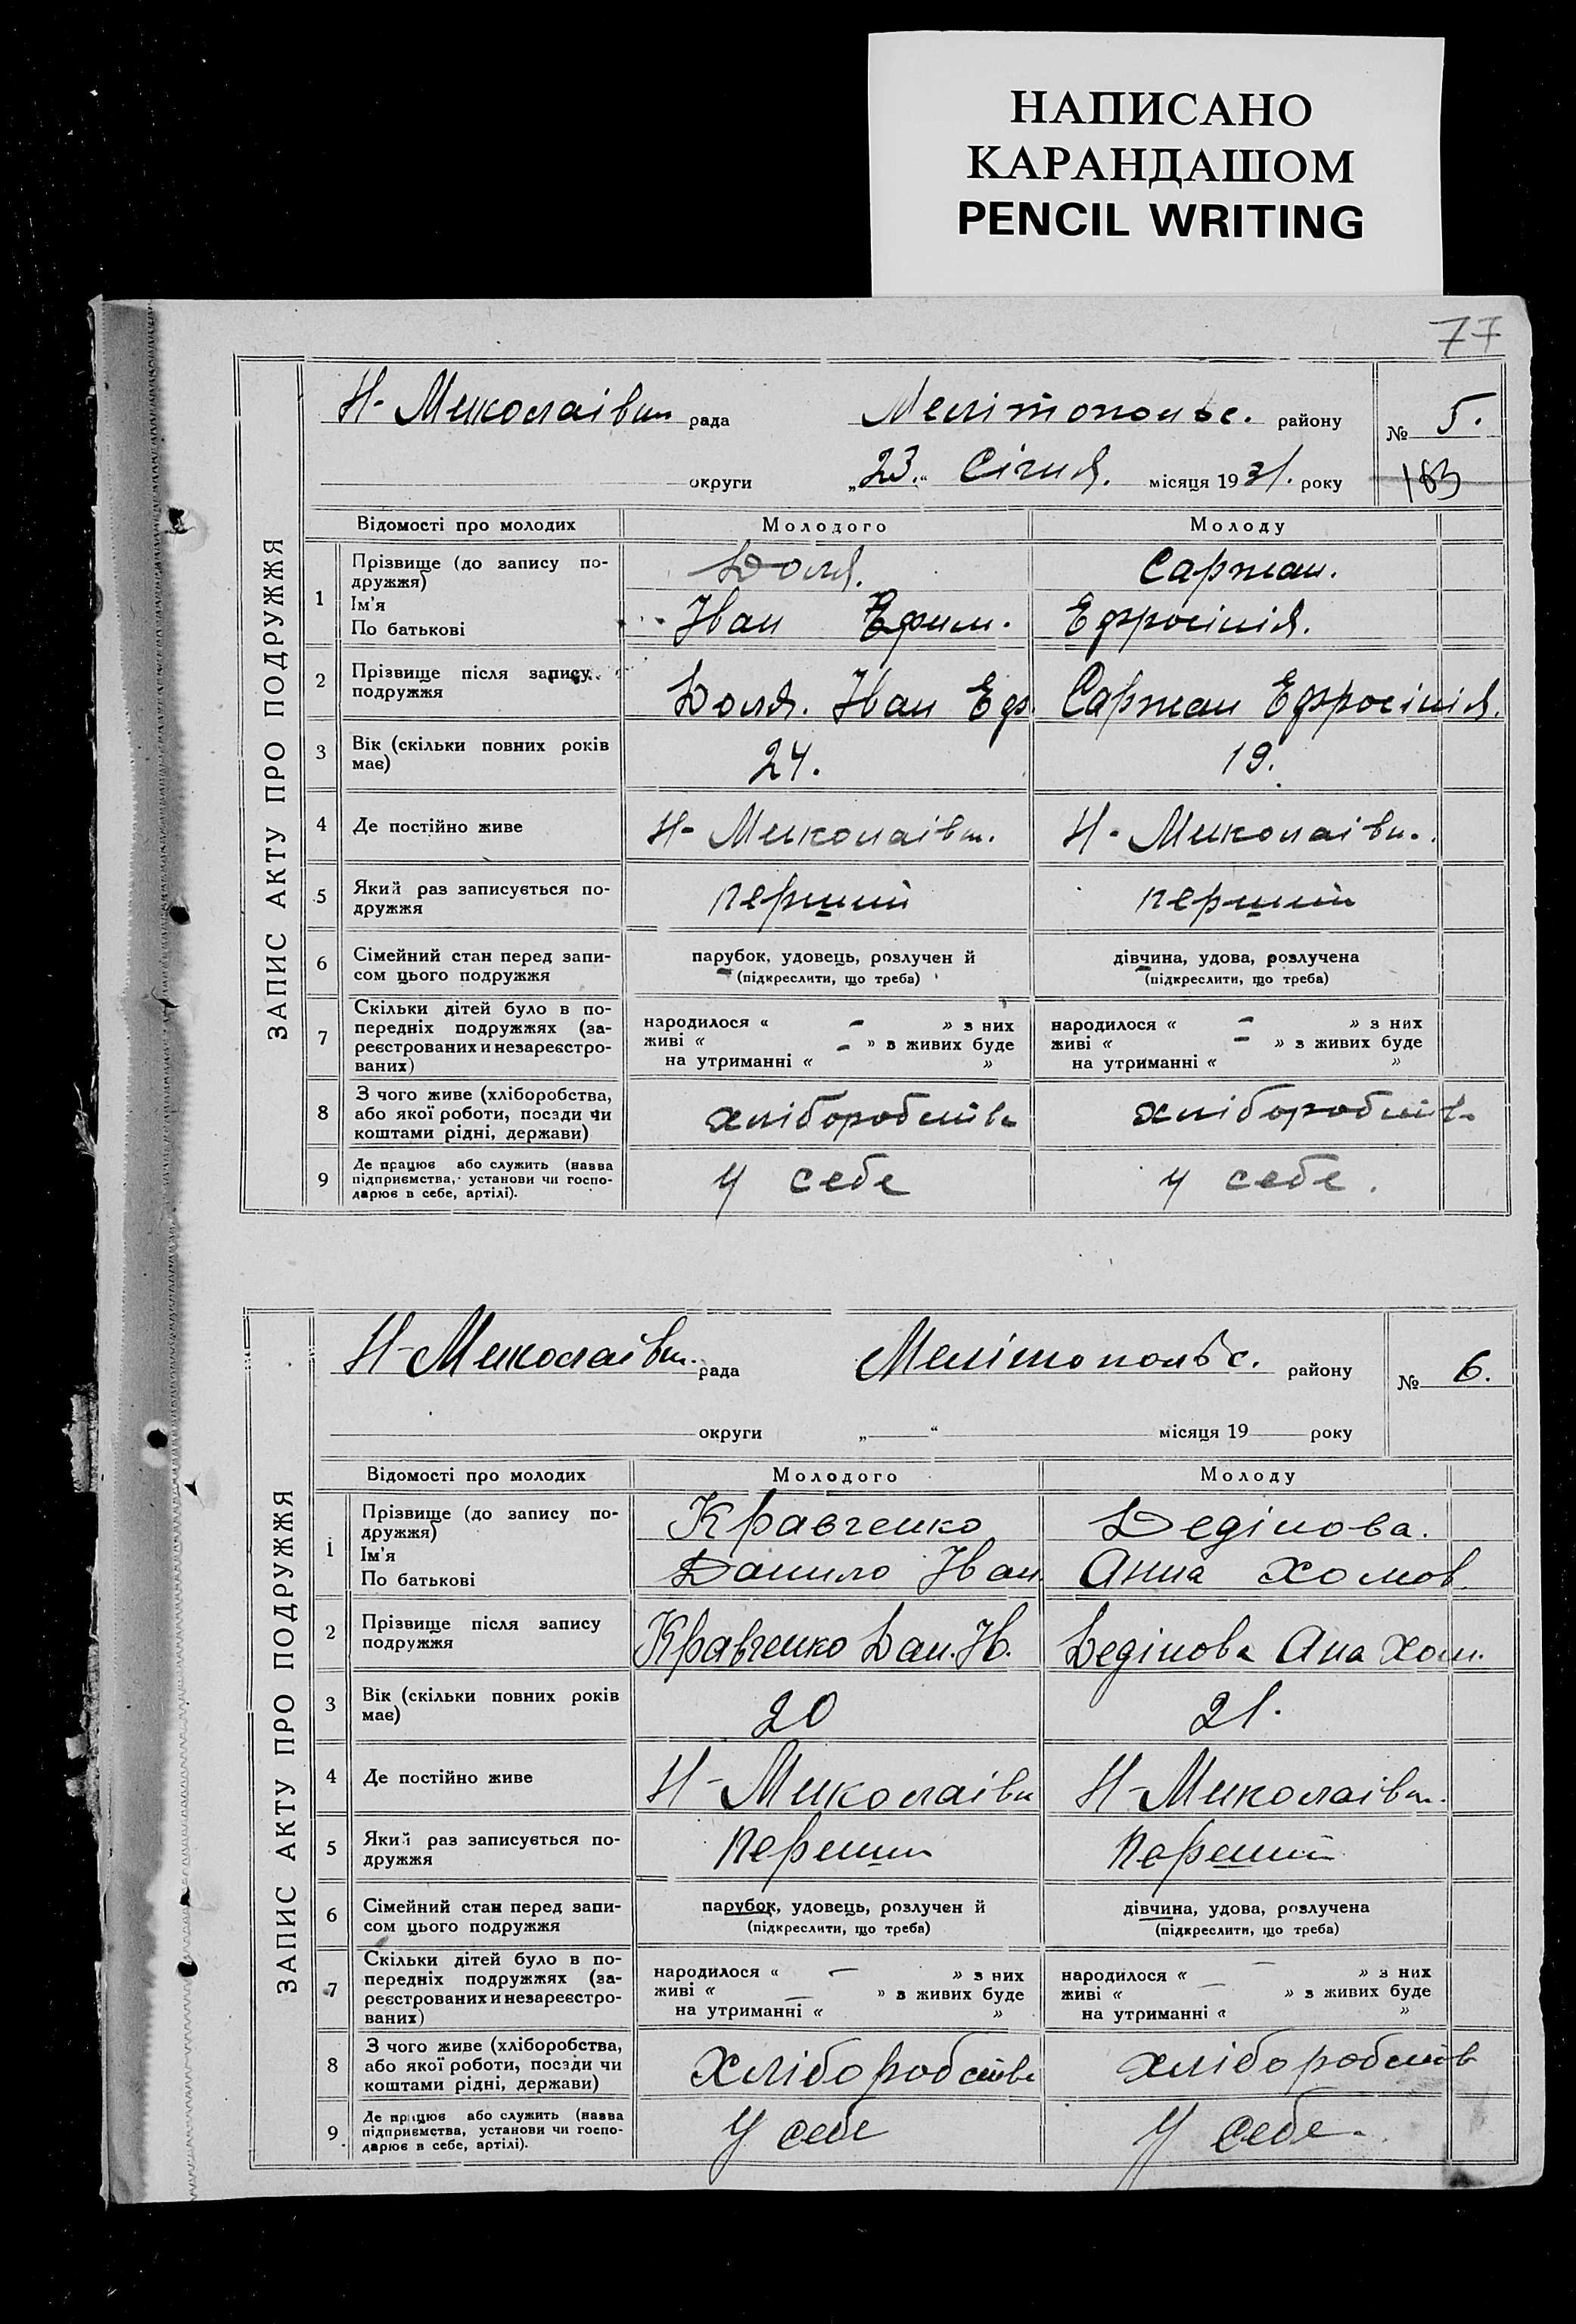 НАПИСАНО
КАРАНДАШОМ
PENCIL WRITING
77
ЗАПИС АКТУ ПРО ПОДРУЖЖЯ
Н-Миколаівш рада Мелітопольс. району № 5.
округи „23.“ Січня. місяця 1931. року 183
Відомості про молодих Молодого Молоду
1 Прізвище (до запису по-
дружжя) Доля. Саржан.
Ім'я
По батькові Іван Ефим. Ефросінія.
2 Прізвище після запису
подружжя Доля. Іван Еф. Саржан Ефросінія.
3 Вік (скільки повних років
має) 24. 19.
4 Де постійно живе Н-Миколаівш. Н-Миколаівн.
5 Який раз записується по-
дружжя перший перший
6 Сімейний стан перед запи-
сом цього подружжя парубок, удовець, розлучен й дівчина, удова, розлучена
(підкреслити, що треба) (підкреслити, що треба)
7 Скільки дітей було в по-
передніх подружжях (за-
реєстрованих и незареєстро-
ваних)
народилося « – » з них народилося « – » з них
живі « – » з живих буде живі « – » з живих буде
на утриманні « » на утриманні « »
8 З чого живе (хліборобства,
або якої роботи, посади чи
коштами рідні, держави) хліборобств хліборобств
9 Де працює або служить (назва
підприємства, установи чи госпо-
дарює в себе, артілі). У себе у себе.
ЗАПИС АКТУ ПРО ПОДРУЖЖЯ
Н-Миколаівш. рада Мелітопольс. району № 6.
округи „ “ місяця 19 року
Відомості про молодих Молодого Молоду
1 Прізвище (до запису по-
дружжя) Кравченко Дедінова.
Ім'я
По батькові Данило Іван. Анна Хомов.
2 Прізвище після запису
подружжя Кравченко Дан. Ів. Дедінова Ана Хом.
3 Вік (скільки повних років
має) 20 21.
4 Де постійно живе Н-Миколаівн Н-Миколаівш.
5 Який раз записується по-
дружжя перший перший
6 Сімейний стан перед запи-
сом цього подружжя парубок, удовець, розлучен й дівчина, удова, розлучена
(підкреслити, що треба) (підкреслити, що треба)
7 Скільки дітей було в по-
передніх подружжях (за-
реєстрованих и незареєстро-
ваних)
народилося « — » з них народилося « — » з них
живі « — » з живих буде живі « — » з живих буде
на утриманні « » на утриманні « »
8 З чого живе (хліборобства,
або якої роботи, посади чи
коштами рідні, держави) Хліборобств хліборобств
9 Де працює або служить (назва
підприємства, установи чи госпо-
дарює в себе, артілі). У себе У себе.